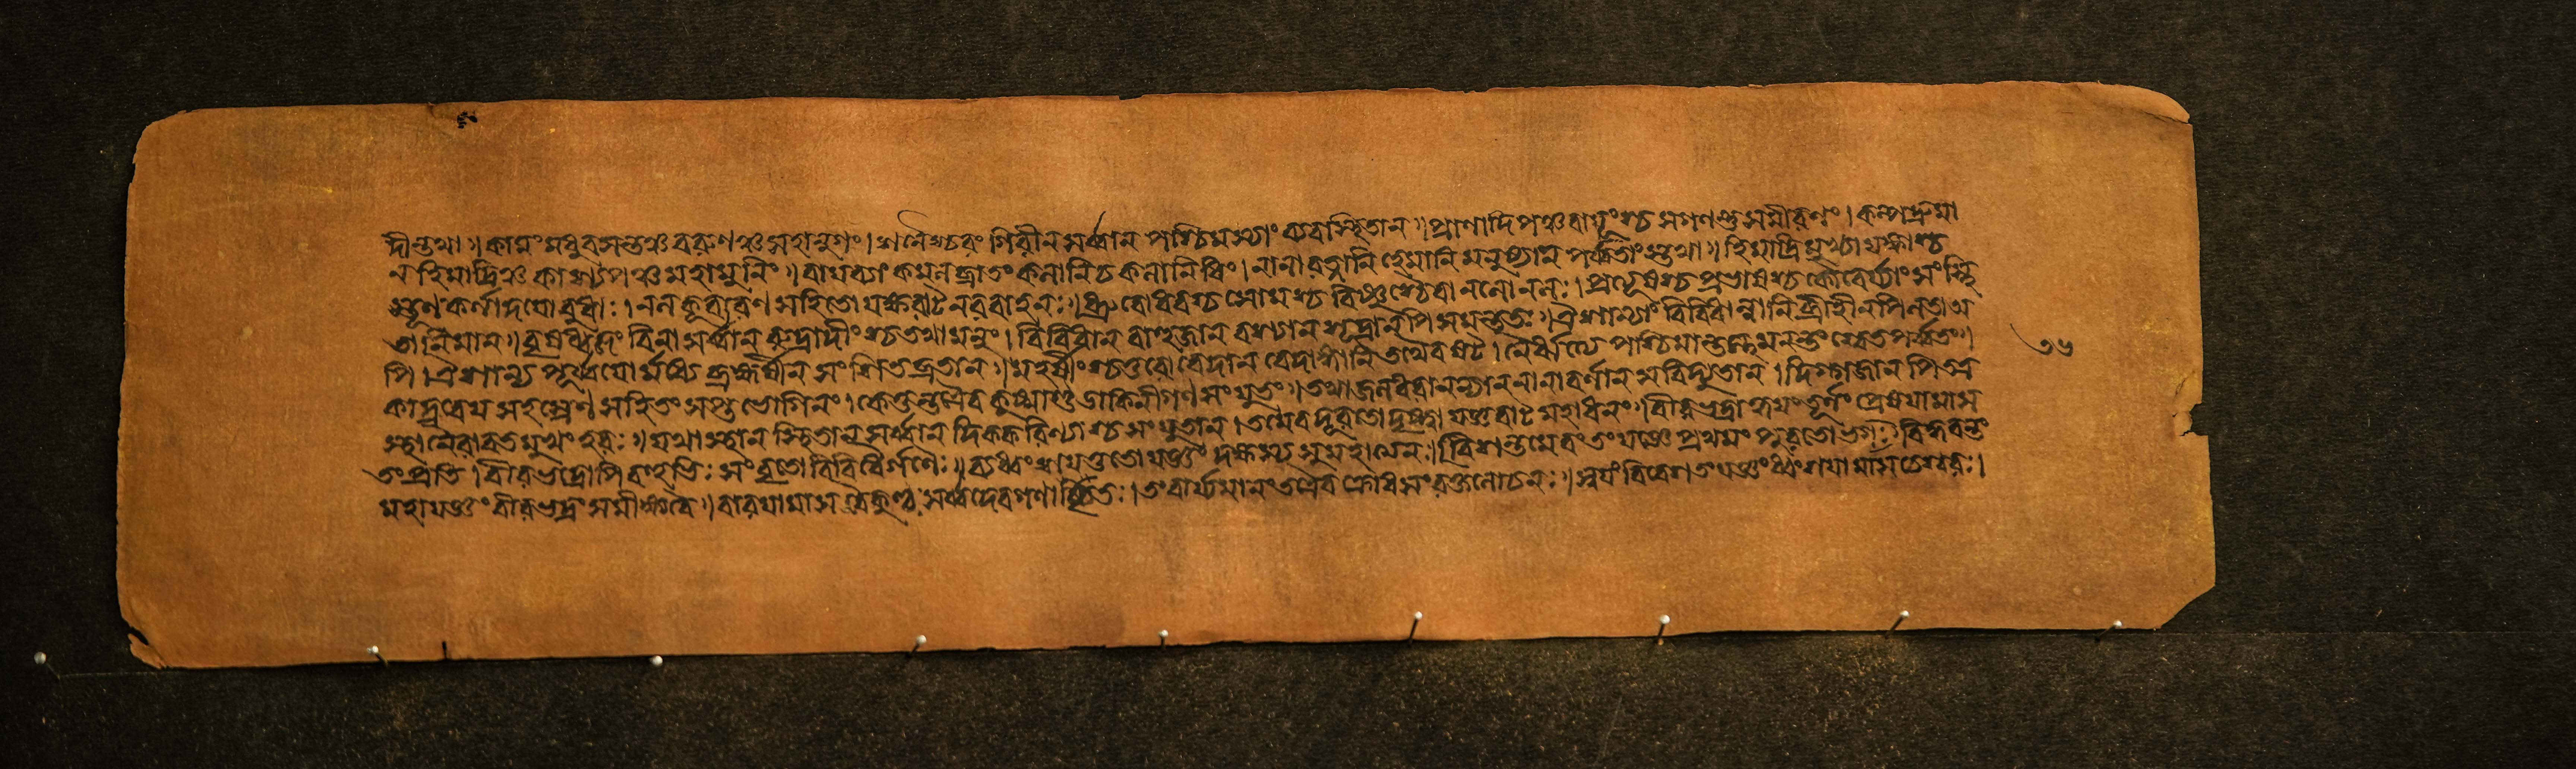 দীন্তথা॥কামং মধুবসন্তঞ্চ বরুণঞ্চ সহানুগং।শনৈশ্চরং গিরীন সর্ব্বান পশ্চিমস্যাং ব্যবাস্থিতান॥প্রাণাদি পঞ্চবায়ূংশ্চ সগণন্তু সমীরণং।কল্পদ্রুমা
ন হিমাদ্রিঞ্চ কাশ্যপঞ্চ মহামুনিং॥বায়ব্যাং কমনব্রাতং কলানিচ কলানিধিং।নানারত্নানি হেমানি মনুষ্যান পর্ব্বতাংস্তথা॥হিমাদ্রিমুখ্যা যক্ষাশ্চ
স্থূণকর্ণাদয়ো বুধাঃ।নলকূবরেণ সহিতো যক্ষরাট নরবাহনঃ॥ধ্রুবোধবশ্চ সোমশ্চ বিষ্ণুশ্চৈবানিলোনলঃ।প্রত্যূষশ্চ প্রভাষশ্চ কৌবের্য্যাং সংস্থি
তানিমান॥বৃষধ্বজং বিনা সর্ব্বান রুদ্রাদীংশ্চ তথা মনুং।বিবিধান বাহুজান বশ্যান শূদ্রানপি সমন্ততঃ॥ঐশান্যাং বিবিধান্নানি ব্রীহীনপি নতা অ
পি।ঐশান্য পূর্ব্বয়োর্মধ্যে ব্রহ্মর্ষীন সংশিতব্রতান॥মহর্ষীংশ্চতুরো বেদান বেদাঙ্গানি তথৈব ষট।নৈর্ঋত্যে পাশ্চিমান্তস্থমনন্তং শ্বেতপর্ব্বতং॥
কাদ্রবেয় সহস্রেণ সহিতং সপ্ত ভোগিনং।কেতুন্তত্রৈব কুষ্মাণ্ড ডাকিনীগণ সংযুতং॥তথা জলধরানন্যান নানাবর্ণান সবিদ্যুতান।দিগ্গজান পি অত্র
স্থানৈরাবত মুখং হরঃ॥যথাস্থান স্থিতান সর্ব্বান দিক্করিণ্যাশ্চ সংযুতান।তমেব দূরতো দৃষ্ট্বা যজ্ঞবাট মহাধনং॥বীরভদ্রাহ্বয়ং তূর্ণং প্রেষয়ামাস
তং প্রতি।বীরভদ্রোপি বহুভিঃ সংবৃতো বিবিধৈর্গণৈঃ॥ব্যধ্বংশয়ত্ততো যজ্ঞং দক্ষস্য সুমহাত্মনঃ॥বিশন্তমেবং তং যজ্ঞে প্রথমং পুরতো ভগঃ বিহ্নবন্তং
মহাযজ্ঞং বীরভদ্রং সমীক্ষ্যবৈ॥বারয়ামাস বৈকুণ্ঠঃ সর্ব্বদেবগণার্চ্চিতঃ।তং বার্য্যমানং তত্রৈব ক্রোধ সংরক্তলোচনঃ॥স্বয়ং বিবেশ তং যজ্ঞং ধ্বংশয়ামাস চেশ্বরঃ।
৩৬